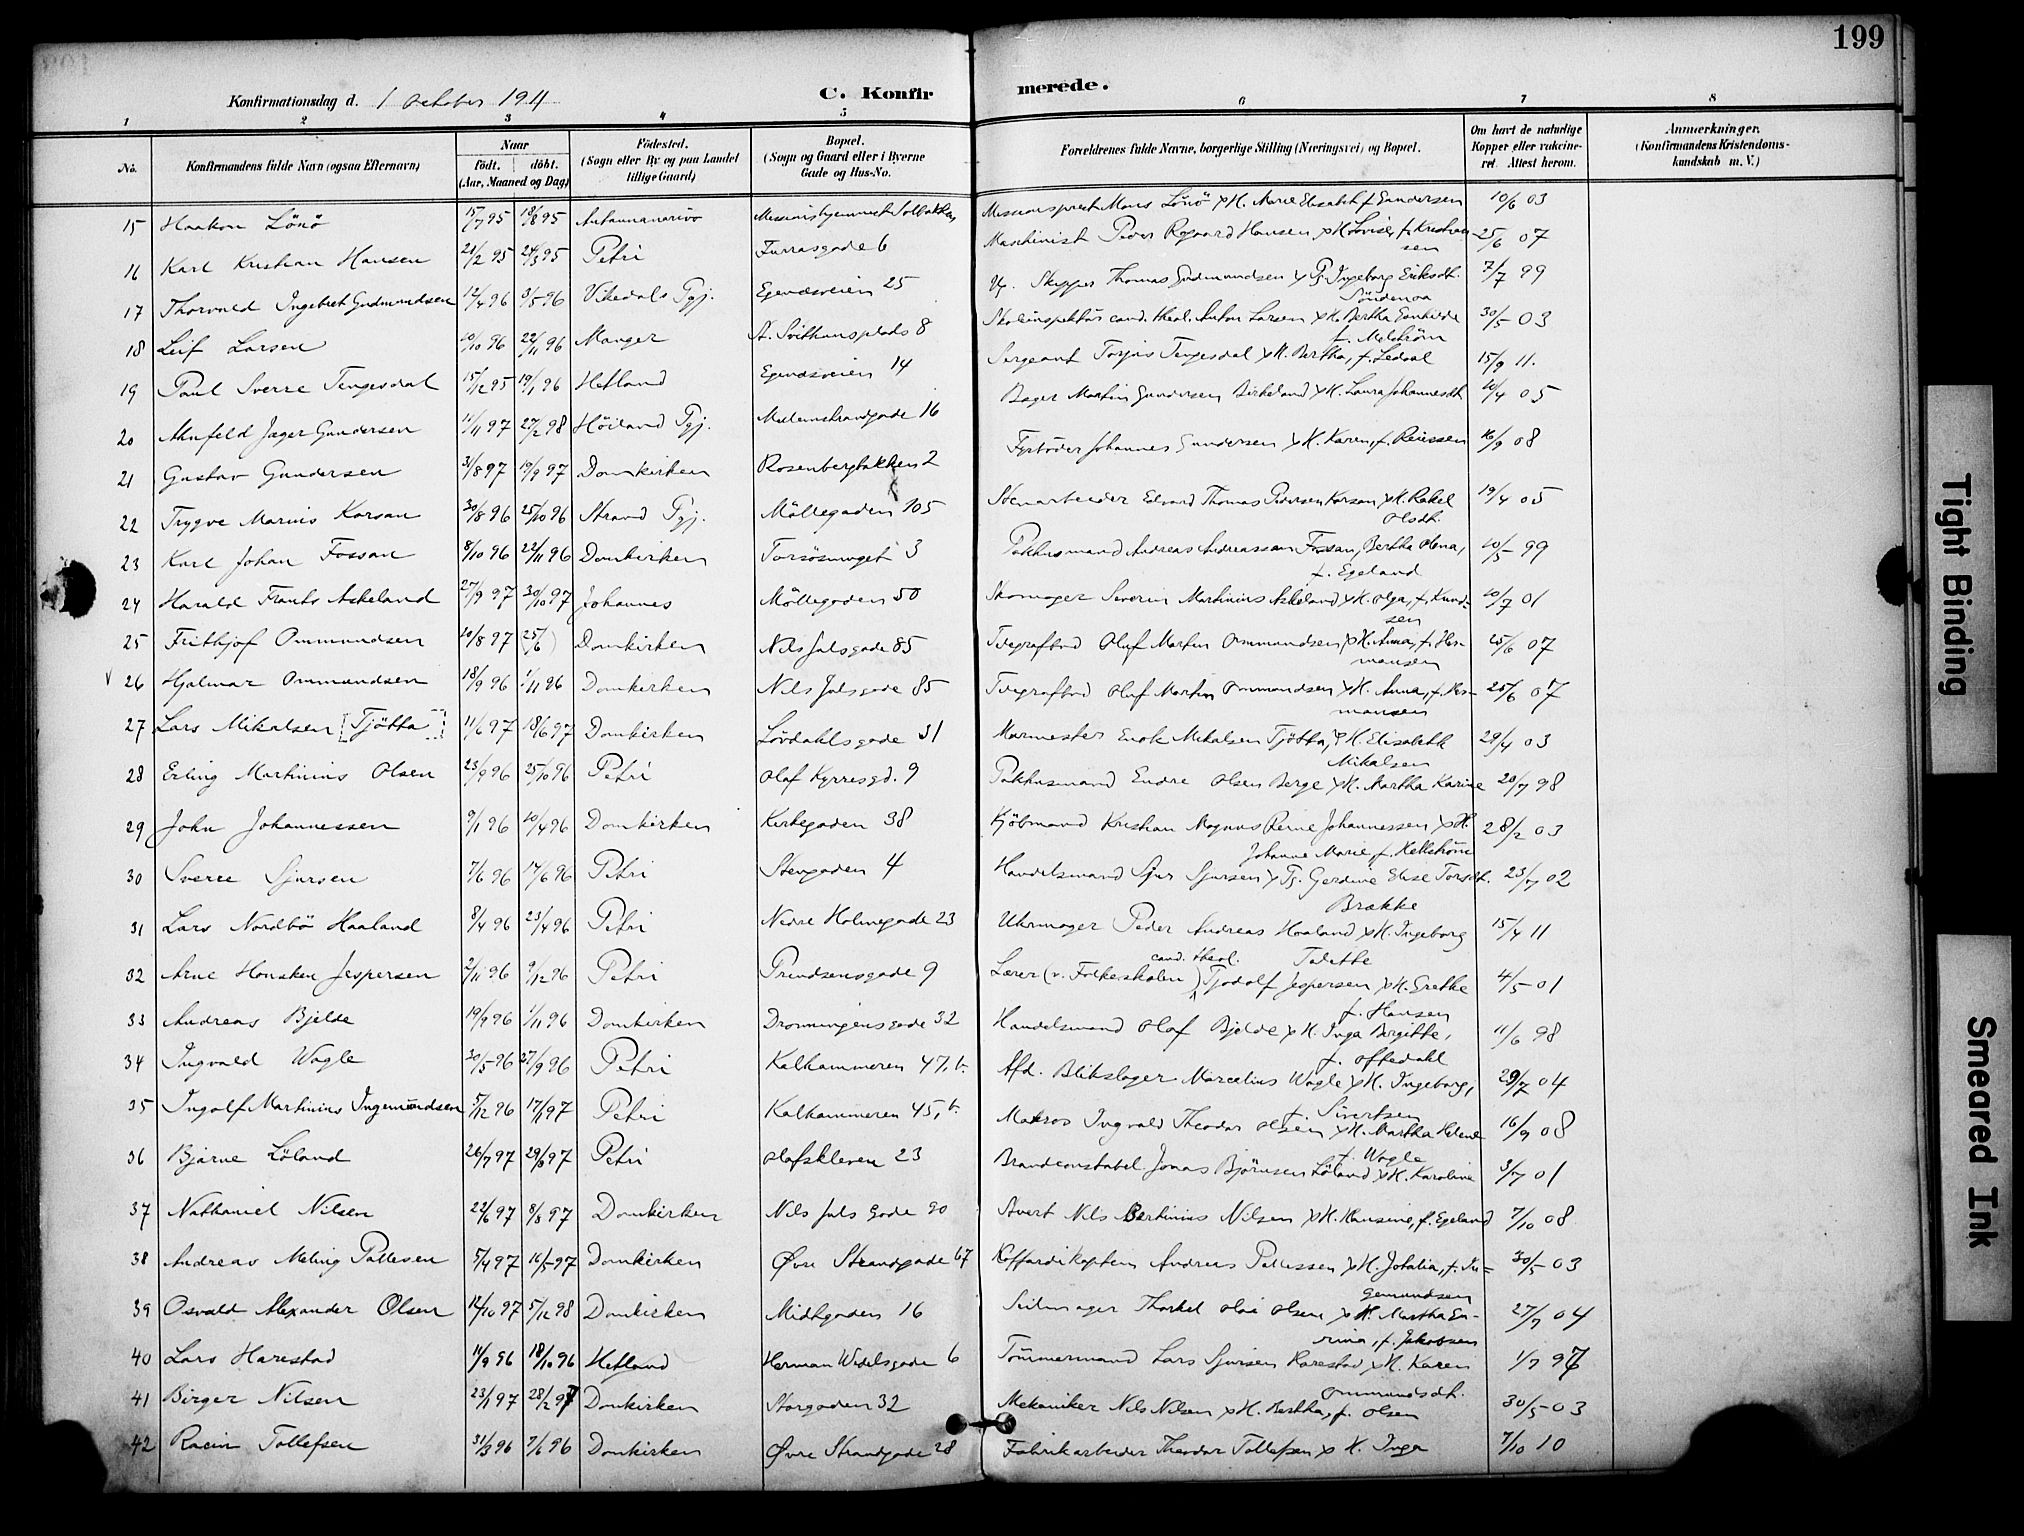 199
Konfirmationsdag d. 1 October 1911
C. Konfirmerede.
1 2 3 4 5 6 7 8
No.
Konfirmandens fulde Navn (ogsaa Efternavn)
Naar
født. døbt.
(Aar, Maaned og Dag)
Fødested.
(Sogn eller By og paa Landet
tillige Gaard)
Bopæl.
(Sogn og Gaard eller i Byerne
Gade og Hus-No.
Forældrenes fulde Navne, borgerlige Stilling (Næringsvei) og Bopæl.
Om havt de naturlige
Kopper eller vakcine-
ret. Attest herom.
Anmerkninger.
(Konfirmandens Kristendoms-
kundskab m. V.)
15 Haakon Lönö 15/7 95 18/8 95 Antananarivo Missionsprest Mons Lönö & H. Marie Elisabet f. Gundersen 10/6 03
16 Karl Kristian Hansen 21/2 95 24/3 95 Petri Furrasgade 6 Maskinist Peder Rogaard Hansen & H. Lovise, f. Kristian-
sen 25/6 07
17 Thorvald Ingebret Gudmundsen 12/4 96 3/5 96 Vikedals Pgj. Egenæsveien 25 Skipper Thomas Gudmundsen & Pg. Ingeborg Eriksdt. 7/7 99
Söndenaa
18 Leif Larsen 20/10 96 22/11 96 Manger St. Svithunsplads 8 Skoleinspektör cand. theol. Anton Larsen & H. Bertha Gunhilde 30/5 03
f. Melström
19 Paul Sverre Tengesdal 15/12 95 19/1 96 Hetland Egenæsveien 14 Sergeant Torjus Tengesdal & H. Bertha, f. Ledaal 15/9 11.
20 Anufeld Jæger Gundersen 11/11 97 27/2 98 Höiland Pgj. Mulemstrandgade 16 Bager Martin Gundersen Birkeland & H. Laura Johannesdt. 20/4 05
21 Gustav Gundersen 31/8 97 19/9 97 Domkirken Rosenbergbakken 2 Fyrböder Johannes Gundersen & H. Karen, f. Reiersen 16/9 08
22 Trygve Marius Korsan 30/8 96 25/10 96 Strand Pgj. Möllegaden 105 Stenarbeider Edvard Thomas Pedersen Korsan & H. Rakel 19/4 05
Olsdt.
23 Karl Johan Fossan 8/10 96 22/11 96 Domkirken 3 Pakhusmand Andreas Andreassen Fossan, Bertha Olena, 20/5 99
f. Egeland
24 Harald Frants Askeland 27/9 97 30/10 97 Johannes Möllegaden 50 Skomager Severin Martinius Askeland & H. Olga, f. Knud- 20/7 01
sen
25 Frithjof Ommundsen 20/8 97 25/6 Domkirken Nils Julsgade 85 Telegrafbud Olaf Martin Ommundsen & H. Anna, f. Her- 25/6 07
mansen
26 Hjalmar Ommundsen 18/9 96 1/11 96 Domkirken Nils Julsgade 85 Telegrafbud Olaf Martin Ommundsen & H. Anna, f. Her- 25/6 07
mansen
27 Lars Mikalsen [Tjötta] 11/6 97 18/6 97 Domkirken Lövdahlsgade 31 Murmester Enok Mikalsen Tjötta, & H. Elisabeth 29/4 03
Mikalsen
28 Erling Martinius Olsen 23/9 96 25/10 96 Petri Olaf Kyrresgd. 9 Pakhusmand Endre Olsen Berge & H. Martha Karine 20/7 98
29 John Johannessen 9/1 96 20/4 96 Domkirken Kirkegaden 38 Kjöbmand Kristian Magnus Reine Johannessen & H. 28/2 03
Johanne Marie, f. Hellström
30 Sverre Sjursen 7/6 96 14/6 96 Petri Stengaden 4 Handelsmand Sjur Sjursen & Pg. Gerdine Elise Torsdt. 23/7 02
Brække
31 Lars Nordbö Haaland 8/4 96 23/4 96 Petri Nedre Holmegade 23 Uhrmager Peder Andreas Haaland & H. Ingeborg 15/4 11
Talette
32 Arne Honsken Jespersen 2/11 96 9/12 96 Petri Prindsensgade 9 Lærer (v. Folkeskolen) cand. theol. Tjodolf Jespersen & H. Grethe 4/5 01
f. Hansen
33 Andreas Bjelde 19/9 96 1/11 96 Domkirken Dronningensgade 32 Handelsmand Olaf Bjelde & H. Inga Birgitte, 11/6 98
f. Oftedahl
34 Ingvald Wagle 30/5 96 27/9 96 Petri Kalhammeren 47, b. Afd. Blikslager Marcelius Wagle & H. Ingeborg, 29/7 04
f. Sivertsen
35 Ingolf Martinius Ingemundsen 5/12 96 17/1 97 Petri Kalhammeren 45, b. Matros Ingvald Theodor Olsen & H. Martha Helene 16/9 08
f. Wagle
36 Bjarne Löland 26/7 97 29/8 97 Petri Olafskleven 23 Brandconstabel Jonas Björnsen Löland & H. Karoline 3/7 01
37 Nathaniel Nilsen 22/6 97 8/8 97 Domkirken Nils Juls Gade 90 Nils Bertinius Nilsen & H. Hansine, f. Egeland 7/10 08
38 Andreas Meling Pallesen 5/4 97 16/5 97 Domkirken Øvre Strandgade 67 Koffardikaptein Andreas Pallesen & H. Jotalia, f. In- 30/5 03
gemundsen
39 Osvald Alexander Olsen 12/10 97 5/12 98 Domkirken Midtgaden 16 Seilmager Thorkel Olai Olsen & H. Martha En- 27/7 04
rina, f. Jakobsen
40 Lars Harestad 11/9 96 18/10 96 Hetland Herman Wedelsgade 6 Tömmermand Lars Sjursen Harestad & H. Karen 1/7 97
Ommundsdt.
41 Birger Nilsen 23/1 97 28/2 97 Domkirken Storgaden 32 Mekaniker Nils Nilsen & H. Bertha, f. Olsen 30/5 03
42 Racin Tollefsen 31/3 96 7/6 96 Domkirken Øvre Strandgade 28 Fabrikarbeider Theodor Tollefsen & H. Inga 7/10 10
Tight Binding
Smeared Ink